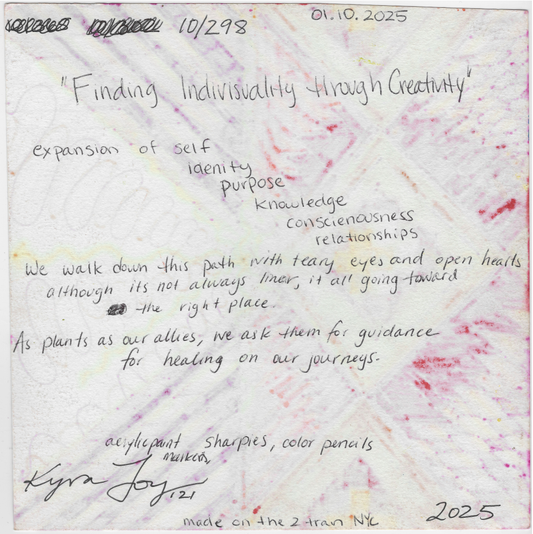 10/298
01.10.2025
"Finding Indivisuality through Creativity"
expansion of self
idenity
purpose
knowledge
conscienousness
relationships
We walk down this path with teary eyes and open hearts
although its not always liner, it all going toward
the right place.
As plants as our allies, we ask them for guidance
for healing on our journeys.
acrylicpaint sharpies, color pencils
markers,
Kyra Joy
121
2025
made on the 2 train NYC